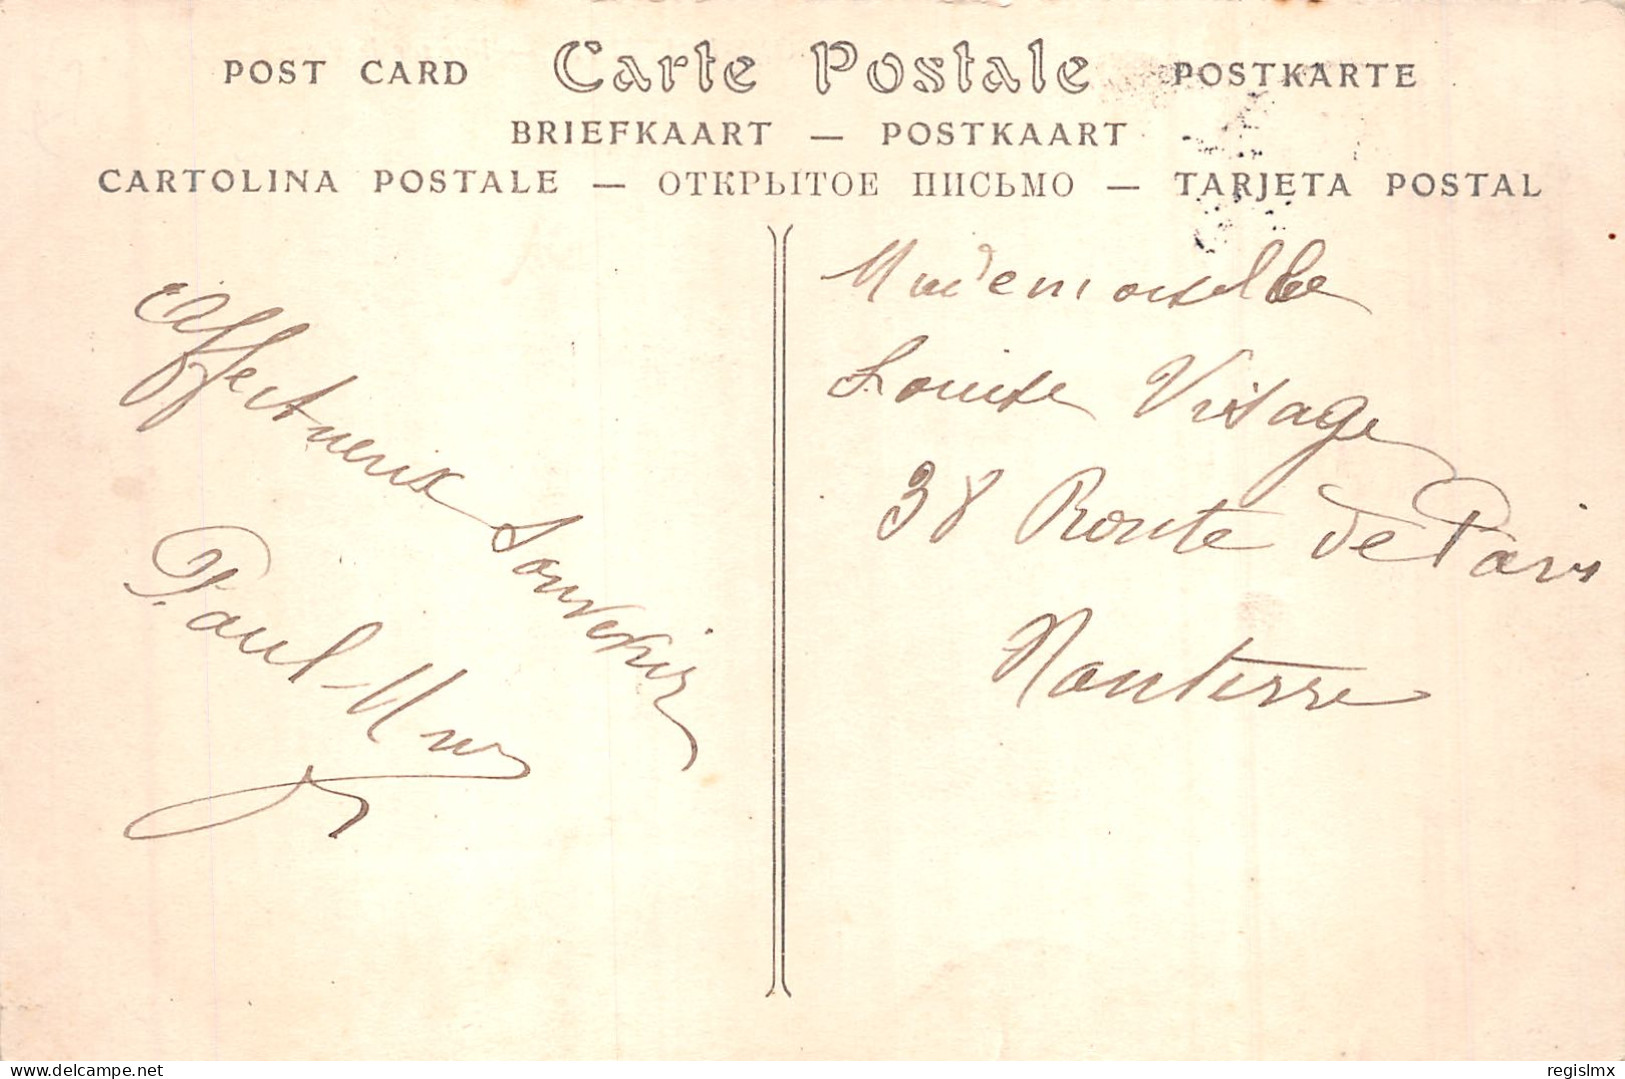 POST CARD Carte Postale POSTKARTE
BRIEFKAART — POSTKAART
CARTOLINA POSTALE — ОТКРЫТОЕ ПИСЬМО — TARJETA POSTAL
Affectueux Souvenir
Paul
Mademoiselle
Louise Visage
38 Route de Paris
Nanterre
delcampe.net
regislmx